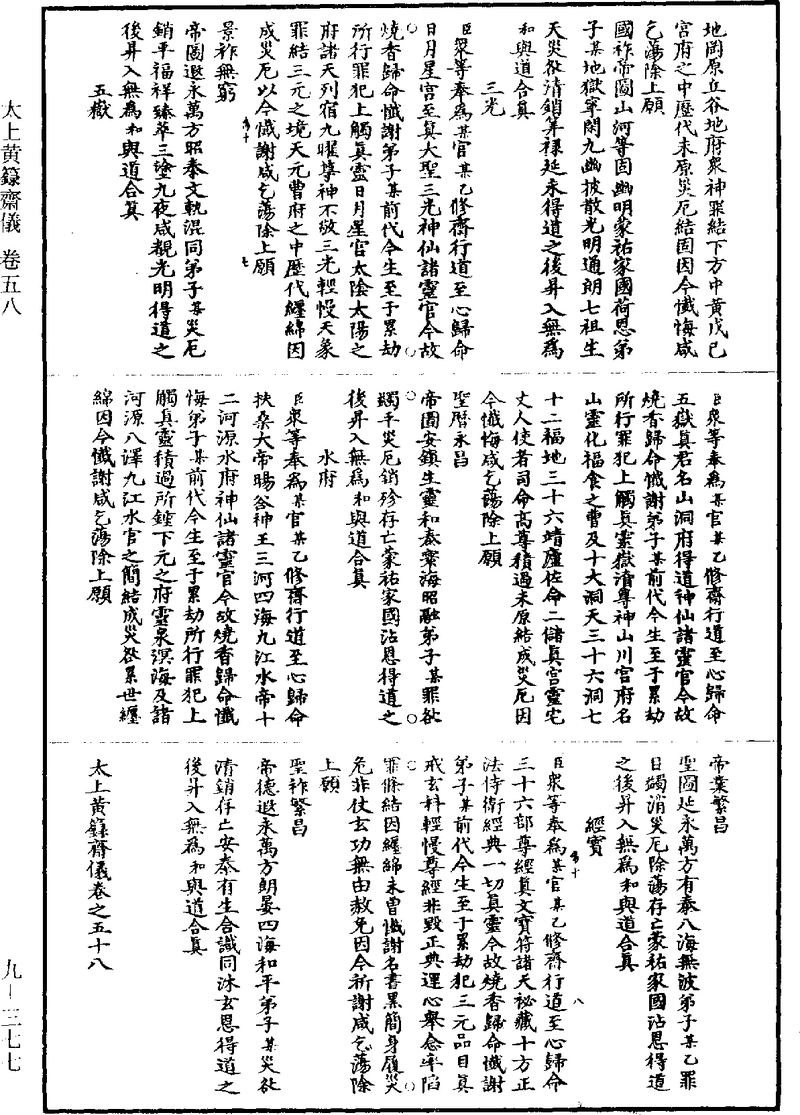 太上黄籙齋儀 卷五八
地岡原丘谷地府衆神罪結下方中黄戊己
宫府之中歷代未原災厄結固因今懺悔咸
乞蕩除上願
國祚帝圖山河等固幽明蒙祐家國荷恩弟
子某地獄寧閑九幽披散光明通朗七祖生
天災欲清銷筭禄延永得道之後昇入無爲
和與道合真
三光
臣衆等奉爲某官某乙修齋行道至心歸命
日月星宫至真大聖三光神仙諸靈官今故
燒香歸命懺謝弟子某前代今生至于累劫
所行罪犯上觸真靈日月星官太陰太陽之
府諸天列宿九曜尊神不敬三光輕慢天象
罪結三元之境天元曹府之中歷代纏綿因
成災厄以今懺謝咸乞蕩除上願
景祚無窮
帝圖遐永萬方昭泰文軌混同弟子某災厄
銷平福祥臻萃三塗九夜咸覩光明得道之
後昇入無爲和與道合真
五嶽
臣衆等奉爲某官某乙修齋行道至心歸命
五嶽真君名山洞府得道神仙諸靈官今故
燒香歸命懺謝弟子某前代今生至于累劫
所行罪犯上觸真靈嶽瀆尊神山川宫府名
山靈化福食之曹及十大洞天三十六洞七
十二福地三十六靖廬佐命二儲真宫靈宅
丈人使者司命高尊積過未原結成災厄因
今懺悔咸乞蕩除上願
聖曆永昌
帝圖安鎮生靈和泰寰海昭融弟子某罪欲
蠲平災厄銷殄存亡蒙祐家國沾恩得道之
後昇入無爲和與道合真
水府
臣衆等奉爲某官某乙修齋行道至心歸命
扶桑大帝暘谷神王三河四海九江水帝十
二河源水府神仙諸靈官今故燒香歸命懺
悔弟子某前代今生至于累劫所行罪犯上
觸真靈積過所鍾下元之府靈泉溟海及諸
河源八澤九江水官之簡結成災欲累世纏
綿因今懺謝咸乞蕩除上願
帝業繁昌
聖圖延永萬方有泰八海無波弟子某乙罪
目蠲消災厄除蕩存亡蒙祐家國沾恩得道
之後昇入無爲和與道合真
經寶
臣衆等奉爲某官某乙修齋行道至心歸命
三十六部尊經真文寶符諸天祕藏十方正
法侍衛經典一切真靈今故燒香歸命懺謝
弟子某前代今生至于累劫犯三元品目真
戒玄科輕慢尊經非毀正典運心舉念率陷
罪條結因纏綿未曾懺謝名書黑簡身履災
危非仗玄功無由赦免因今祈謝咸乞蕩除
上願
聖祚繁昌
帝德遐永萬方朗晏四海和平弟子某災欲
清銷存亡安泰有生含識同沐玄恩得道之
後昇入無爲和與道合真
太上黄籙齋儀卷之五十八
九－三七七